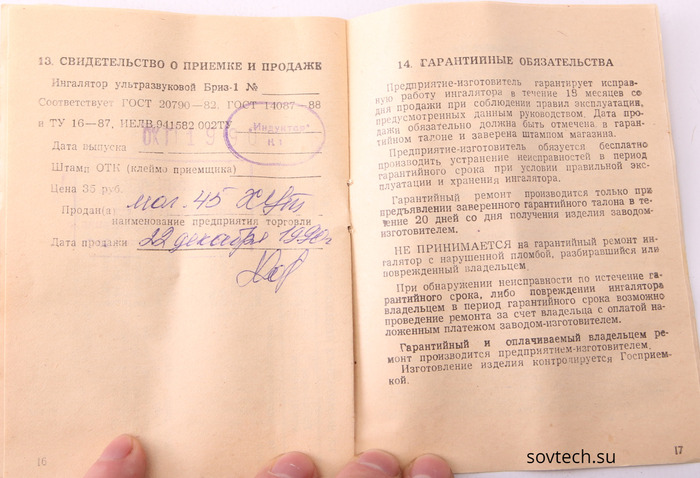 13. СВИДЕТЕЛЬСТВО О ПРИЕМКЕ И ПРОДАЖЕ
Ингалятор ультразвуковой Бриз-1 №
Соответствует ГОСТ 20790—82, ГОСТ 14087—88
и ТУ 16—87, ИЕЛВ.941582 002ТУ
Дата выпуска ОКТ 1990
"Индуктор"
К 1
Штамп ОТК (клеймо приемщика)
Цена 35 руб.
Продан(а) маг. 45
наименование предприятия торговли
Дата продажи 22 декабря 1990г
16
14. ГАРАНТИЙНЫЕ ОБЯЗАТЕЛЬСТВА
Предприятие-изготовитель гарантирует исправ-
ную работу ингалятора в течение 18 месяцев со
дня продажи при соблюдении правил эксплуатации,
предусмотренных данным руководством. Дата про-
дажи обязательно должна быть отмечена в гаран-
тийном талоне и заверена штампом магазина.
Предприятие-изготовитель обязуется бесплатно
производить устранение неисправностей в период
гарантийного срока при условии правильной экс-
плуатации и хранения ингалятора.
Гарантийный ремонт производится только при
предъявлении заверенного гарантийного талона в те-
чение 20 дней со дня получения изделия заводом-
изготовителем.
НЕ ПРИНИМАЕТСЯ на гарантийный ремонт ин-
галятор с нарушенной пломбой, разбиравшийся или
поврежденный владельцем.
При обнаружении неисправности по истечение га-
рантийного срока, либо повреждении ингалятора
владельцем в период гарантийного срока возможно
проведение ремонта за счет владельца с оплатой на-
ложенным платежом заводом-изготовителем.
Гарантийный и оплачиваемый владельцем ре-
монт производится предприятием-изготовителем.
Изготовление изделия контролируется Госприем-
кой.
17
sovtech.su